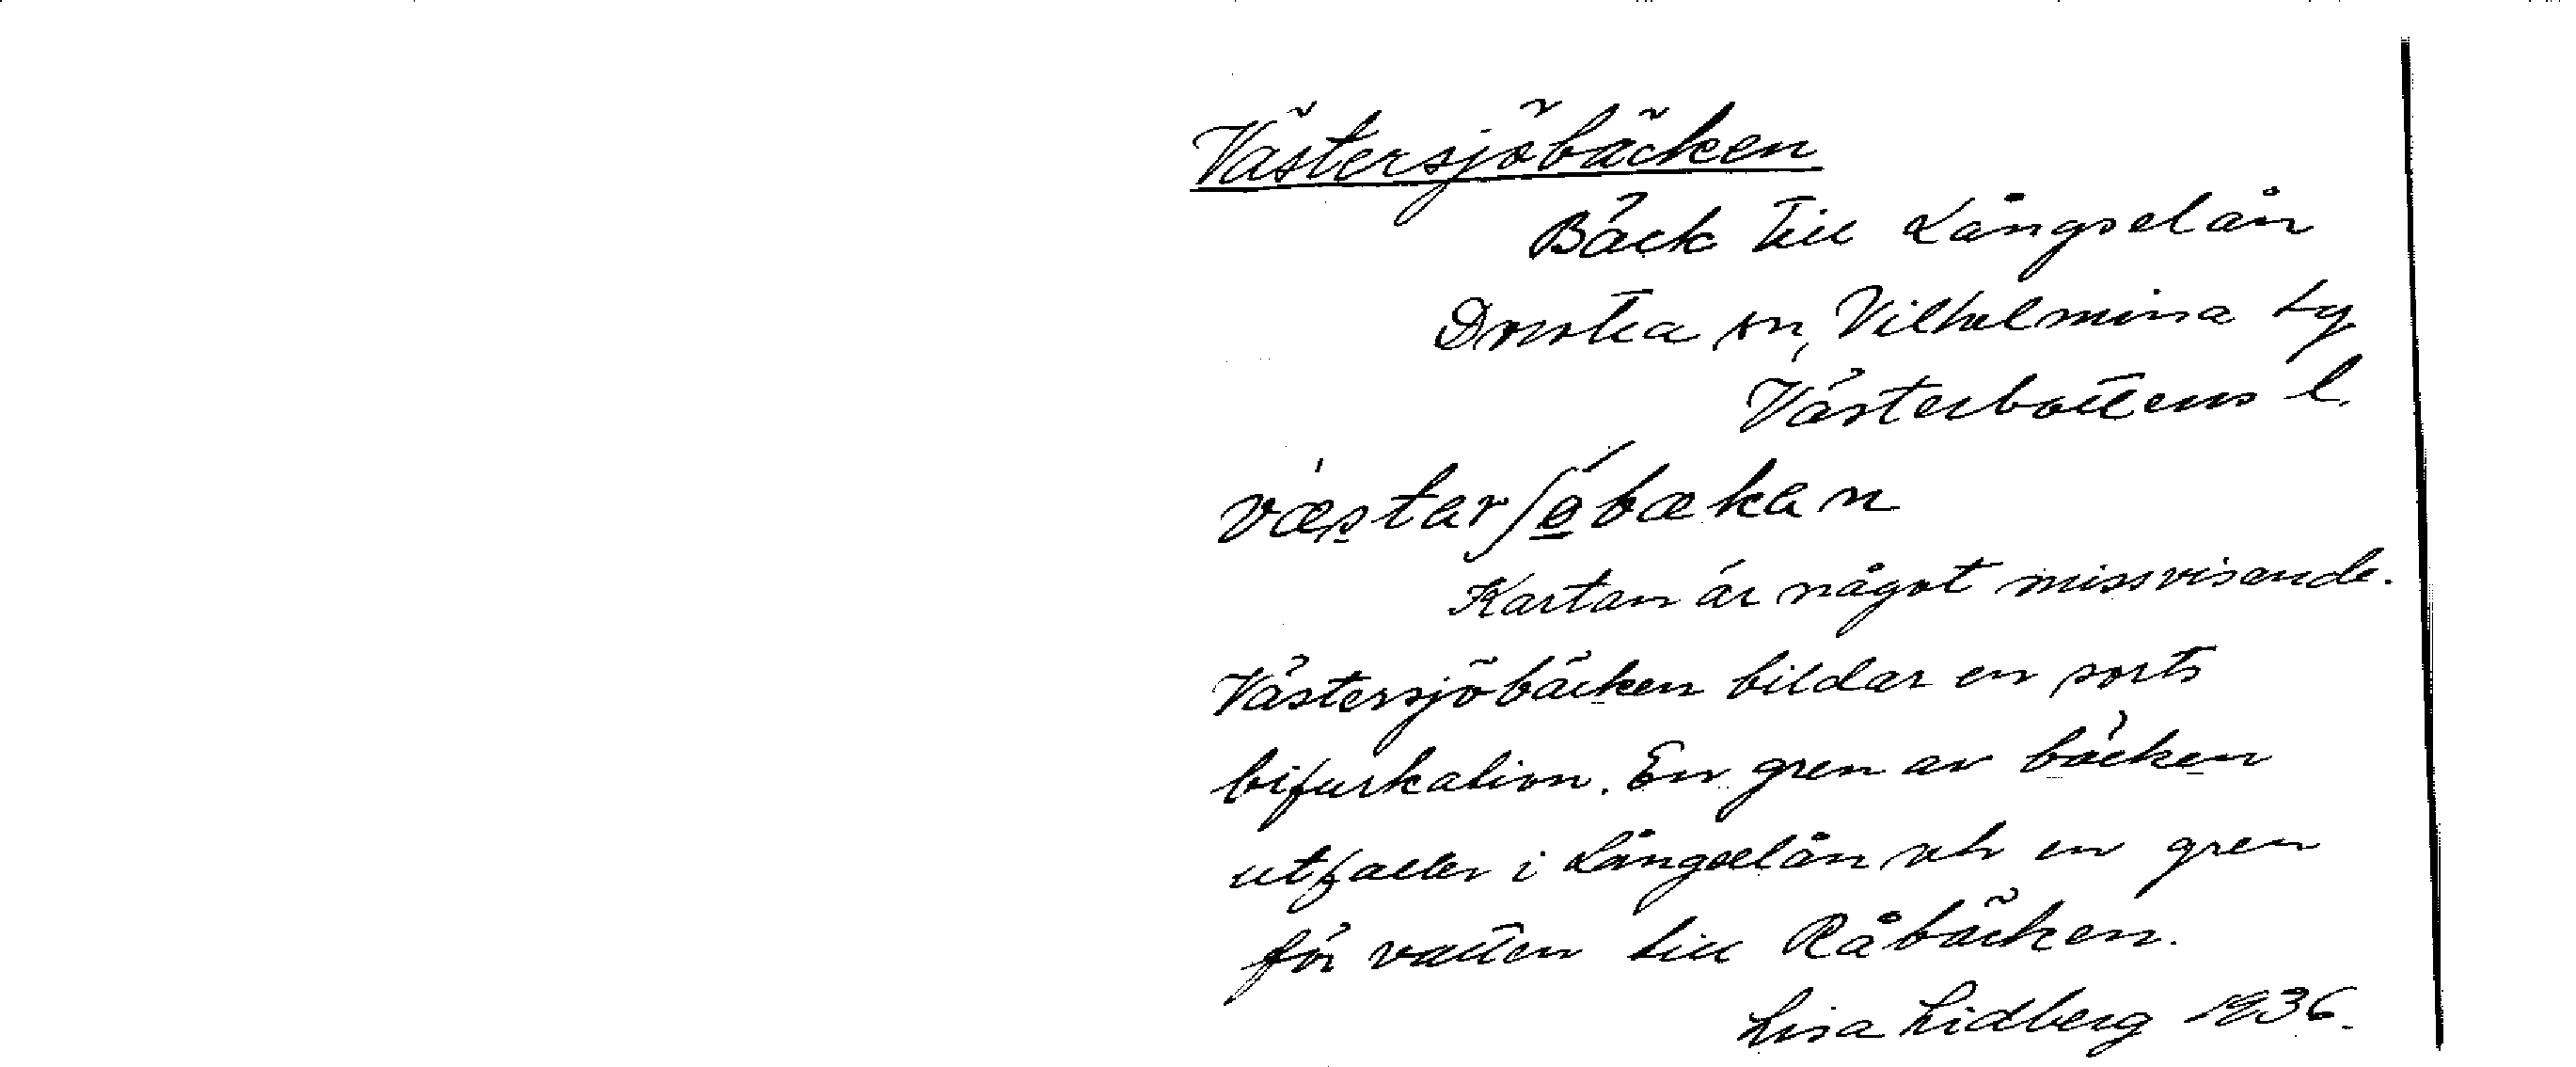 Västersjöbäcken
Bäck till Långselån
Dorotea sn, Vilhelmina tg
Västerbottens l.
væstarʃøbækan
Kartan är något missvisande.
Västersjöbäcken bildar en sorts
bifurkation. En gren av bäcken
utfaller i Långselån och en gren
för vatten till Råbäcken.
Lisa Lidberg 1936.